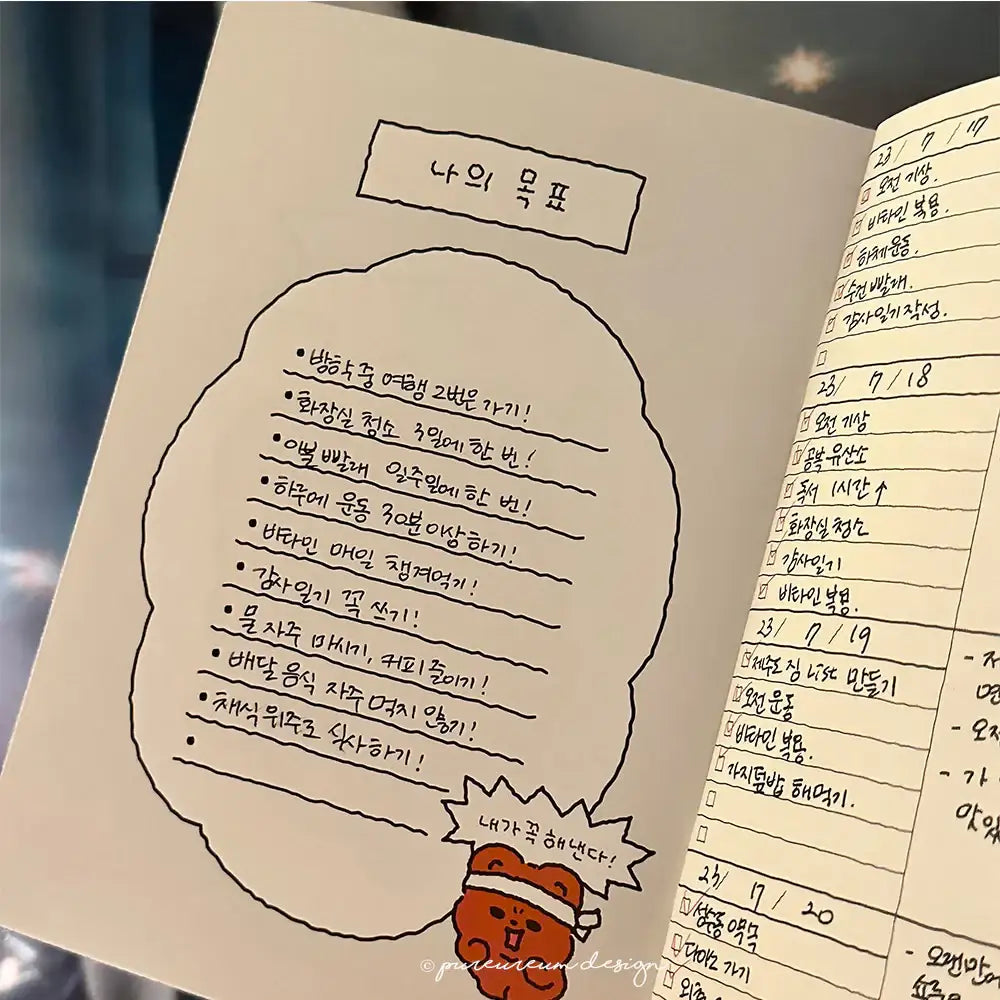 나의 목표
• 방학 중 여행 2번은 가기!
• 화장실 청소 3일에 한 번!
• 이불 빨래 일주일에 한 번!
• 하루에 운동 30분 이상 하기!
• 비타민 매일 챙겨먹기!
• 감사 일기 꼭 쓰기!
• 물 자주 마시기, 커피 줄이기!
• 배달 음식 자주 먹지 않기!
• 채식 위주로 식사하기!
•
내가 꼭 해낸다!
© pureureum design
23/ 7/17
오전 기상.
비타민 복용.
하체운동.
수건 빨래.
감사일기 작성.
23/ 7/18
오전 기상
공복 유산소
독서 1시간↑
화장실 청소
감사일기
비타민 복용.
23/ 7/19
제주도 짐 List 만들기
오전 운동
비타민 복용.
가지덮밥 해먹기.
23/ 7/ 20
성수동 약속
다이소 가기
- 오전
- 가
맛있
- 오랜만에